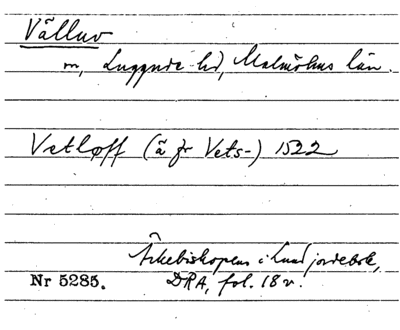 Välluv
m, Luggude hd, Malmöhus län.
Vetløff (ä fr Vets-) 1522
Ärkebiskopens i Lund jordebok,
Nr 5285. DRA, fol. 18 v.